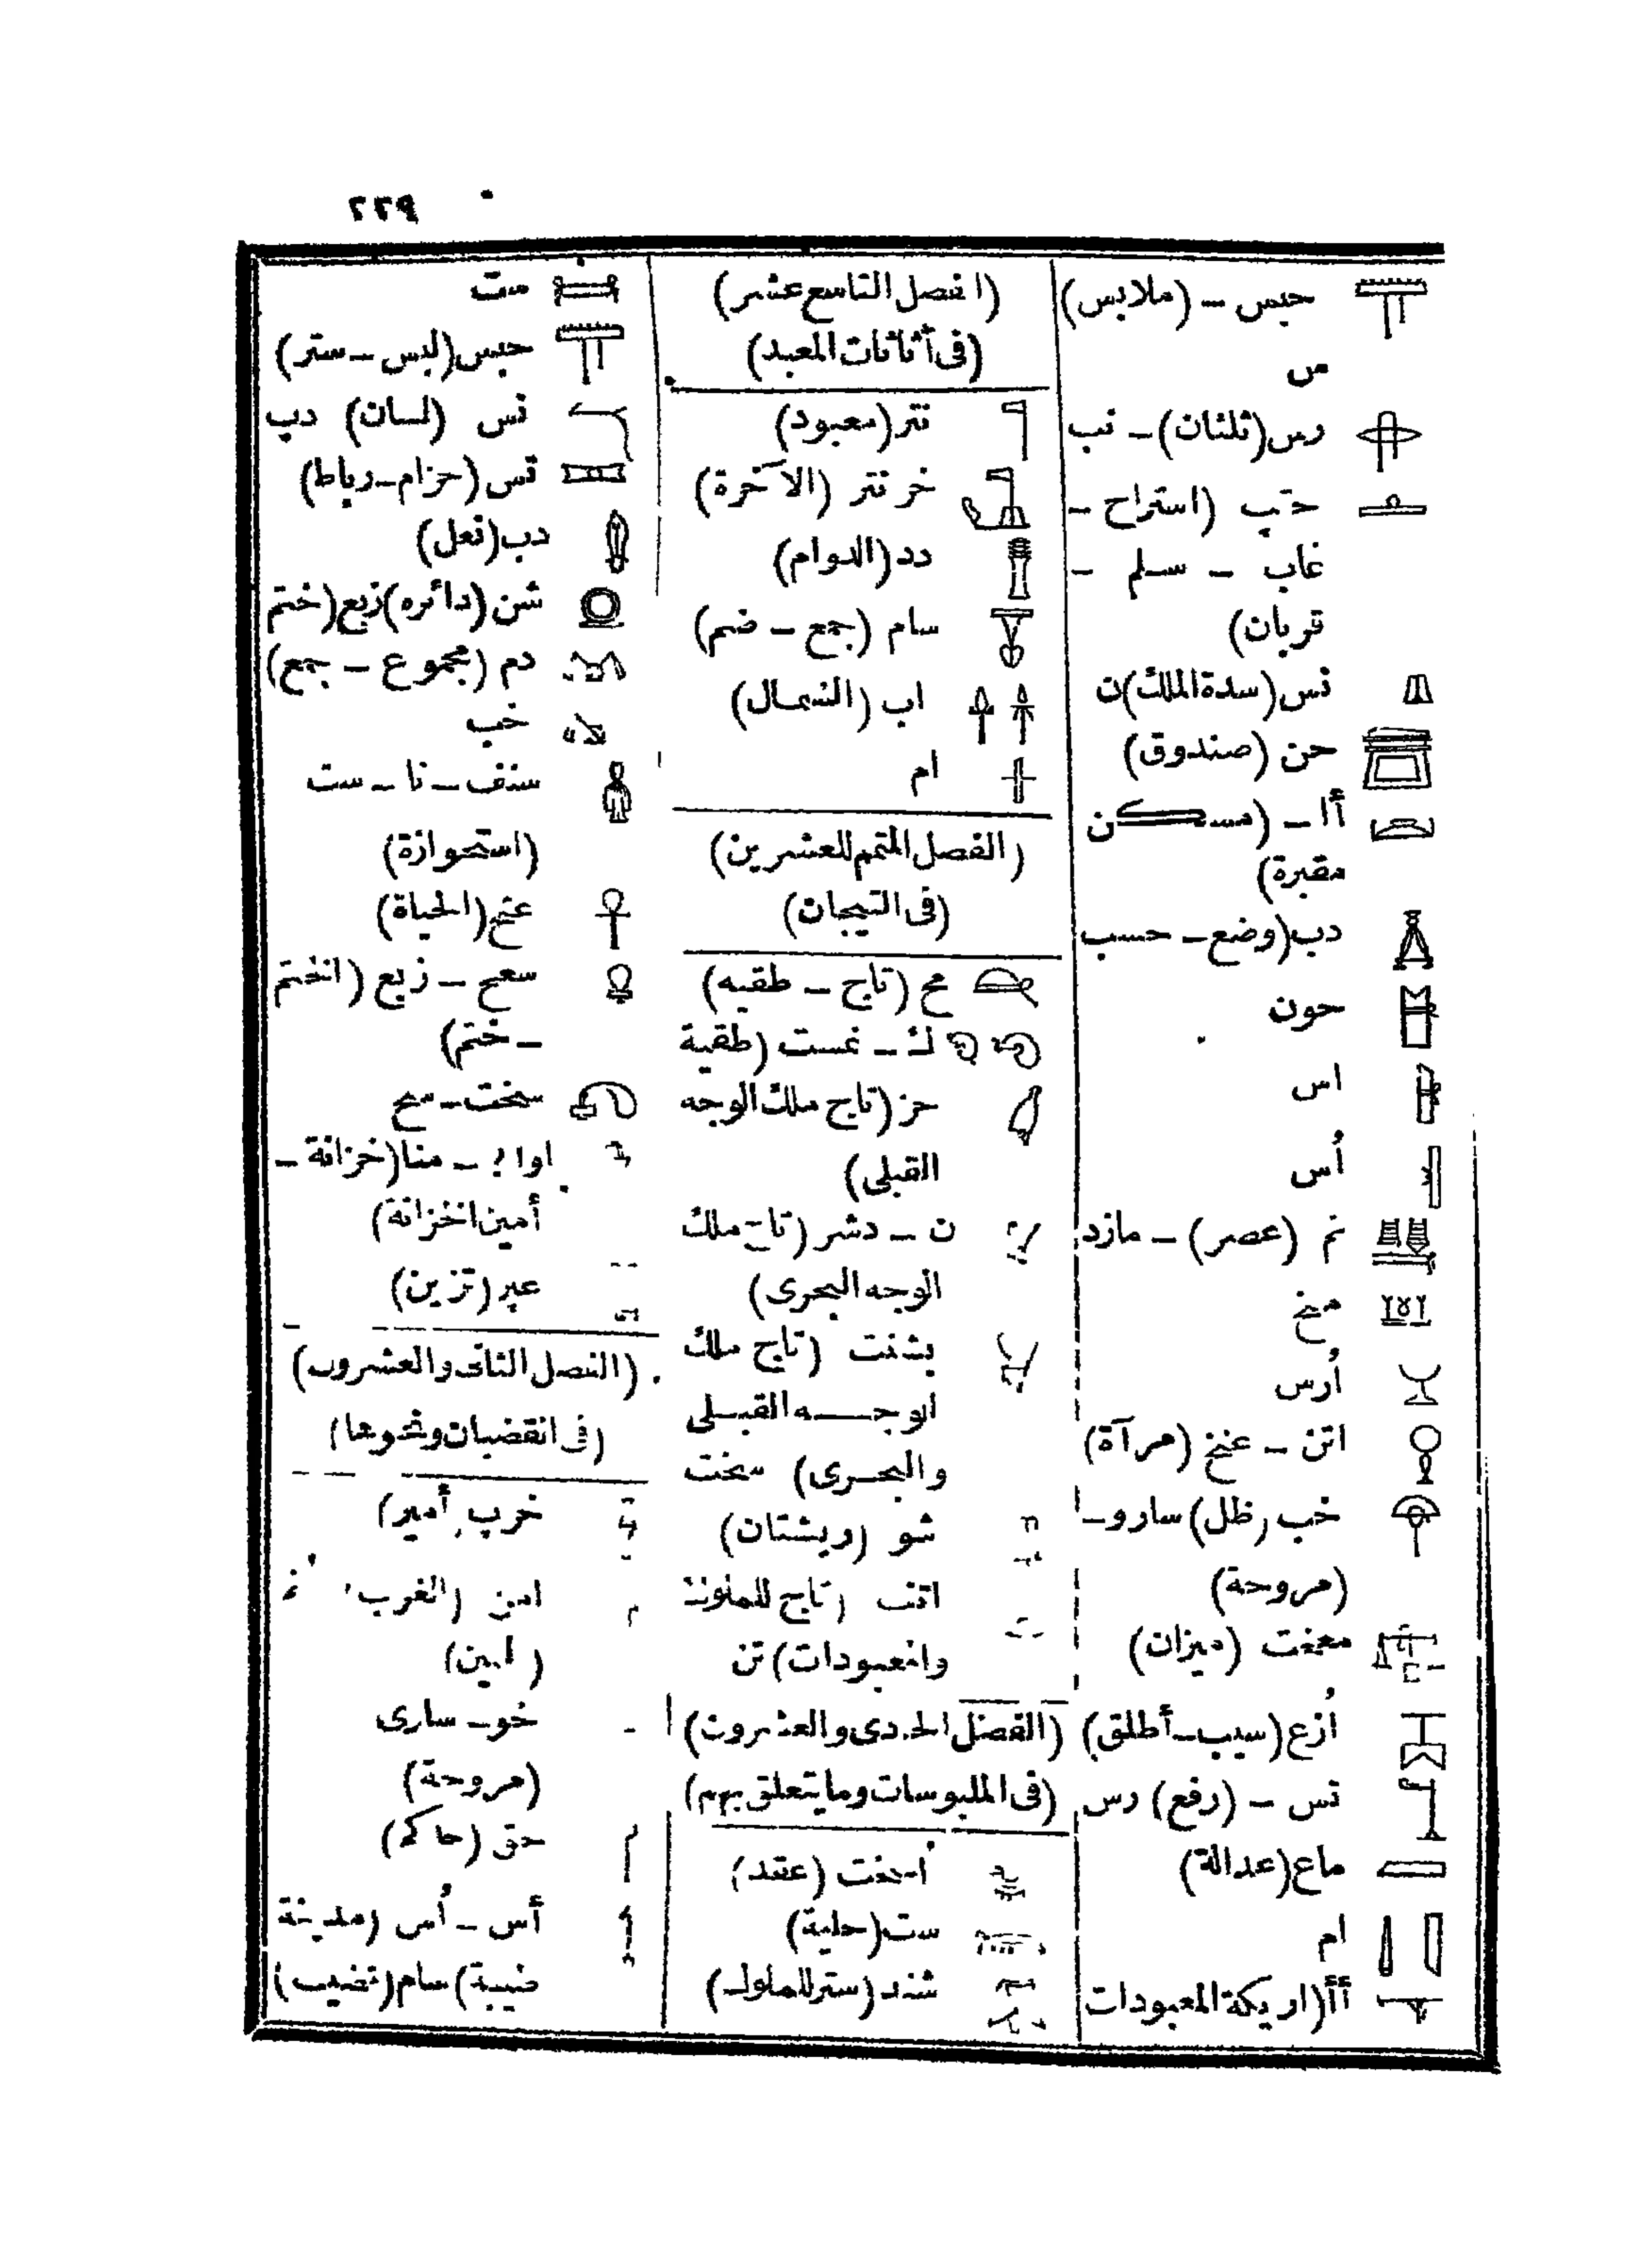 ٢٢٩
حبس - (ملابس)
س
رس (ثلثان) - نب
حتب (استراح -
غاب - سلم -
قربان)
نس (سدة الملك) ن
حن (صندوق)
أا - (مسكن
مقبرة)
دب (وضع - حسب
حون
اس
أُس
نم (عصر) - مازد
منخ
أُرس
اتن - عنخ (مرآة)
خب (ظل) سارو -
(مروحة)
معخت (ميزان)
أُزع (سيب - أطلق)
تس - (رفع) رس
ماع (عدالة)
ام
أأ (اريكة المعبودات
(الفصل التاسع عشر)
(فى أثاثات المعبد)
نتر (معبود)
خر نتر (الآخرة)
دد (الدوام)
سام (جمع - ضم)
اب (الشمال)
ام
(الفصل المتمم للعشرين)
(فى التيجان)
مح (تاج - طقيه)
ك - غست (طقية
حز (تاج ملك الوجه
القبلى)
ن - دشر (تاج ملك
الوجه البحرى)
بشنت (تاج ملك
الوجه القبلى
والبحرى) سخت
شو (ريشتان)
اتف (تاج للملوك
والمعبودات) تن
(الفصل الحادى والعشرون)
(فى الملبوسات وما يتعلق بهم)
(عقد)
ست (حلية)
شند (ستر للملوك)
ست
حبس (لبس - ستر)
نس (لسان) دب
تس (حزام - رباط)
دب (نعل)
شن (دائره) زبع (ختم
دم (مجموع - جمع)
خب
سنف - نا - ست
(استحوازة)
عنخ (الحياة)
سعح - زبع (الختم
- ختم)
سخت - سح
اوا ؟ - منا (خزانة -
أمين الخزانة)
عبر (تزين)
(الفصل الثانى والعشرون)
(فى القضبان ونحوها)
خرب (أمير)
امن (الغرب
خو - سارى
(مروحة)
حق (حاكم)
أس - أُس (مدينة
طيبة) سام (قضيب)